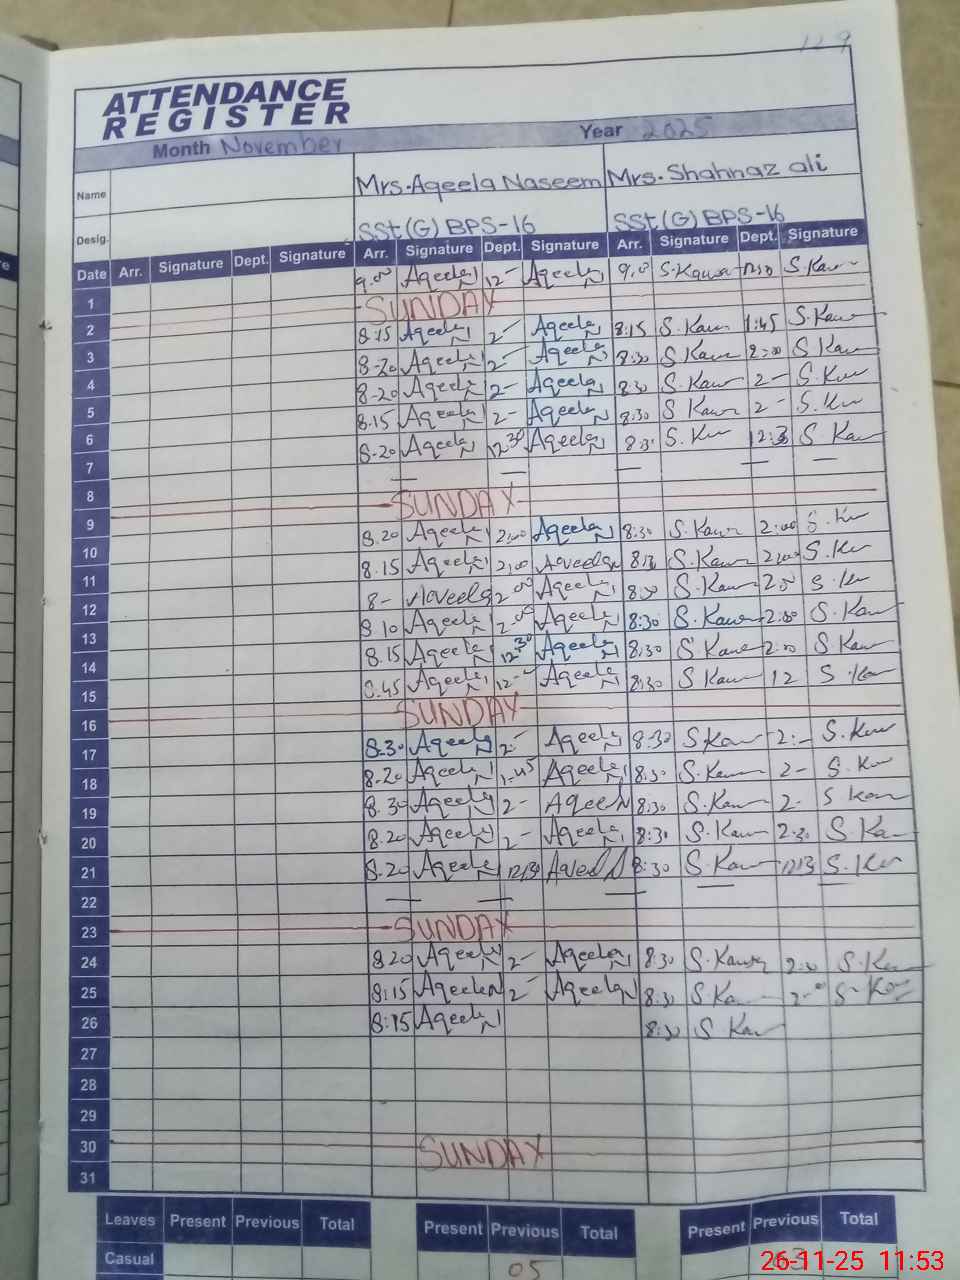 129
ATTENDANCE
REGISTER
Month November Year 2025
Name Mrs. Aqeela Naseem Mrs. Shahnaz ali
Desig. SSt (G) BPS-16 SSt (G) BPS-16
Date Arr. Signature Dept. Signature Arr. Signature Dept. Signature Arr. Signature Dept. Signature
1 9.00 Aqeela 12- Aqeela 9.0 S.Kawa 12:30 S.Kawr
2 SUNDAY
3 8:15 Aqeela 2- Aqeela 8:15 S.Kawr 1:45 S.Kawr
4 8-20 Aqeela 2- Aqeela 8:30 S.Kawr 2:00 S Kawr
5 8-20 Aqeela 2- Aqeela 8:30 S.Kawr 2- S.Kaw
6 8.15 Aqeela 2- Aqeela 8:30 S Kawr 2- S.Kaw
7 8-20 Aqeela 12:30 Aqeela 8:3 S.Kaw 12:3 S Kaw
8 — — — — —
9 SUNDAY
10 8.20 Aqeela 2:00 Aqeela 8:30 S.Kawr 2:00 S.Kaw
11 8.15 Aqeela 2,00 Aqeela S.Kawr 2,00 S.Kaw
12 8- Aqeela 2 00 Aqeela 8:30 S.Kawr S.Kaw
13 8 10 Aqeela 2 00 Aqeela 8:30 S.Kawr 2:00 S.Kaw
14 8.15 Aqeela 12.30 Aqeela 8:30 S Kawr S.Kaw
15 8.45 Aqeela 12- Aqeela 8:30 S Kawr 12 S.Kaw
16 SUNDAY
17 8-30 Aqeela 2- Aqeela 8:30 S Kaw 2:- S.Kaw
18 8-20 Aqeela 1-45 Aqeela 8:30 S.Kawr 2- S.Kaw
19 8.30 Aqeela 2- Aqeela 8:30 S.Kawr 2- S Kaw
20 8.20 Aqeela 2- Aqeela 8:30 S.Kawr 2:30 S.Ka
21 8.20 Aqeela 12:30 Aqeela 8:30 S.Kaw S.Kaw
22 — — — — —
23 SUNDAY
24 820 Aqeela 2- Aqeela 8:30 S.Kawr S.Kaw
25 8:15 Aqeela 2- Aqeela 8:30 S.Ka 2-0 S-Kaw
26 8:15 Aqeela 8:30 S Kaw
27
28
29
30 SUNDAY
31
Leaves Present Previous Total Present Previous Total Present Previous Total
Casual 05 03
26-11-25 11:53